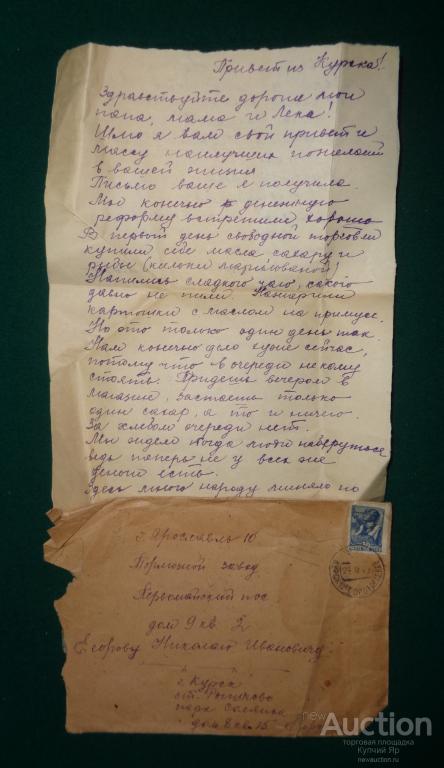 Привет из Курска!
Здравствуйте дорогие мои
папа, мама и Лека!
Шлю я вам свой привет и
массу наилучших пожеланий
в вашей жизни
Письмо ваше я получила.
Мы конечно денежную
реформу встретили хорошо
В первый день свободной торговли
купили себе масла сахару и
рыбы (кильки маринованой)
Напились сладкого чаю, какого
давно не пили. Нажарили
картошки с маслом на примусе.
Но это только один день так.
Нам конечно дело хуже сейчас,
потому что в очереди некому
стоять. Придешь вечером в
магазин, застаешь только
один сахар, а то и ничего.
За хлебом очереди нет.
Мы ждем когда люди наберуться
ведь теперь не у всех же
деньги есть.
Здесь много народу меняло по
г. Ярославль 10
Тормозной завод
Первомайский пос
дом 9 кв. 2
Егорову Николаю Ивановичу.
г. Курск
ст.
дом 8 кв. 15
newAuction
торговая площадка
Купчий Яр
newauction.ru